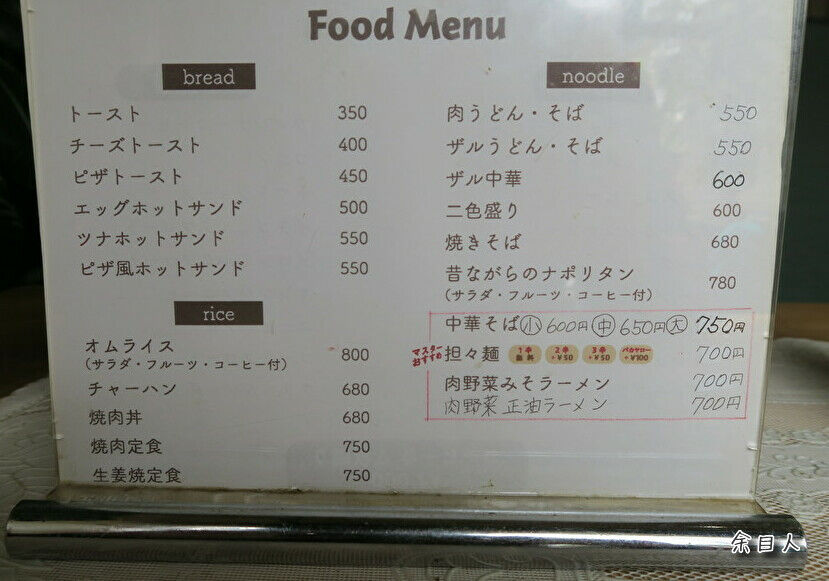 Food Menu
bread
トースト 350
チーズトースト 400
ピザトースト 450
エッグホットサンド 500
ツナホットサンド 550
ピザ風ホットサンド 550
rice
オムライス 800
(サラダ・フルーツ・コーヒー付)
チャーハン 680
焼肉丼 680
焼肉定食 750
生姜焼定食 750
noodle
肉うどん・そば 550
ザルうどん・そば 550
ザル中華 600
二色盛り 600
焼きそば 680
昔ながらのナポリタン 780
(サラダ・フルーツ・コーヒー付)
中華そば小600円中650円大750円
マスター
おすすめ
担々麺 1辛 無料 2辛 +¥50 3辛 +¥50 バカヤロー +¥100 700円
肉野菜みそラーメン 700円
肉野菜 正油ラーメン 700円
余目人